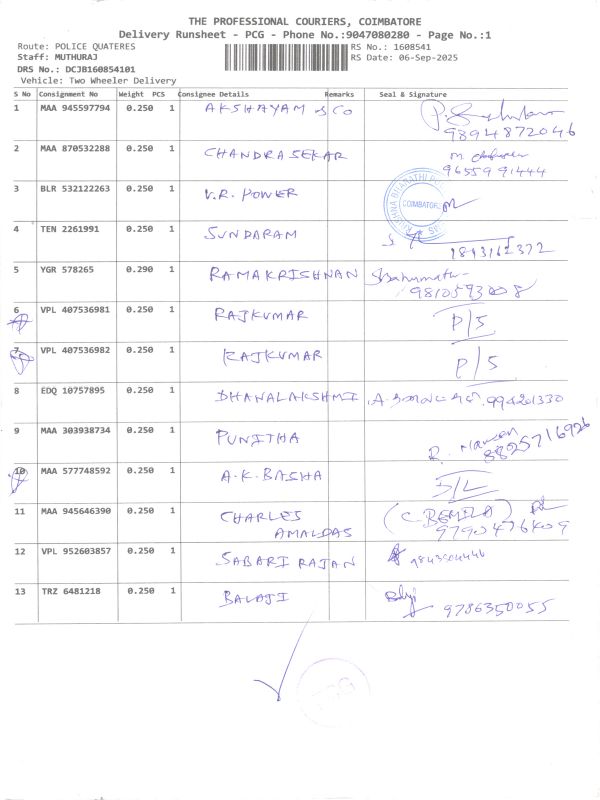 THE PROFESSIONAL COURIERS, COIMBATORE
Delivery Runsheet - PCG - Phone No.:9047080280 - Page No.:1
Route: POLICE QUATERES RS No.: 1608541
Staff: MUTHURAJ RS Date: 06-Sep-2025
DRS No.: DCJB160854101
Vehicle: Two Wheeler Delivery
S No Consignment No Weight PCS Consignee Details Remarks Seal & Signature
1 MAA 945597794 0.250 1 AKSHAYAM & CO
9894872046
2 MAA 870532288 0.250 1 CHANDRASEKAR
9655991444
3 BLR 532122263 0.250 1 V.R. POWER COIMBATORE
4 TEN 2261991 0.250 1 SUNDARAM
5 YGR 578265 0.290 1 RAMAKRISHNAN
9810593008
6 VPL 407536981 0.250 1 RAJKUMAR P/S
7 VPL 407536982 0.250 1 RAJKUMAR P/S
8 EDQ 10757895 0.250 1 DHANALAKSHMI
9 MAA 303938734 0.250 1 PUNITHA R. Naveen
8825716926
10 MAA 577748592 0.250 1 A.K. BASHA S/L
11 MAA 945646390 0.250 1 CHARLES AMALDAS (C. BEMILA)
12 VPL 952603857 0.250 1 SABARI RAJAN
13 TRZ 6481218 0.250 1 BALAJI Balaji
9786350055
PCG